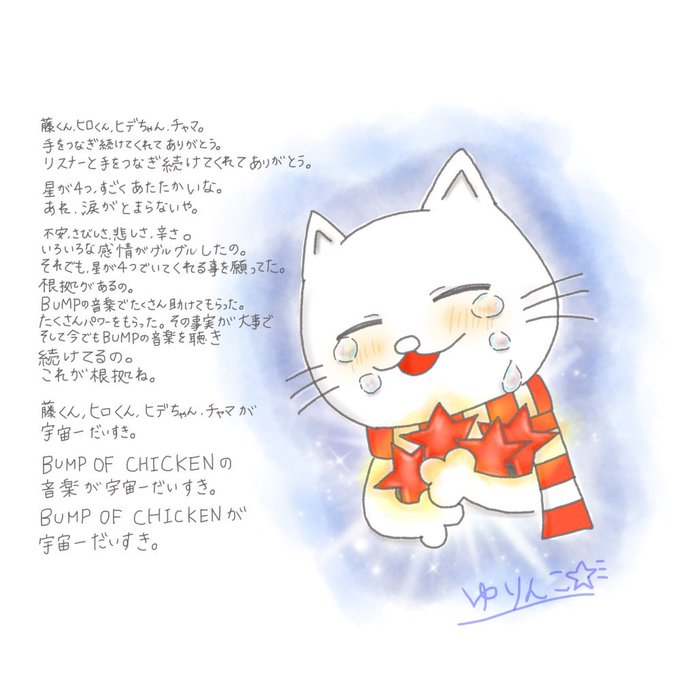 藤くん、ヒロくん、ヒデちゃん、チャマ。
手をつなぎ続けてくれてありがとう。
リスナーと手をつなぎ続けてくれてありがとう。
星が4つ、すごくあたたかいな。
あれ、涙がとまらないや。
不安、さびしさ、悲しさ、辛さ。
いろいろな感情がグルグルしたの。
それでも、星が4つでいてくれる事を願ってた。
根拠があるの。
BUMPの音楽でたくさん助けてもらった。
たくさんパワーをもらった。その事実が大事で
そして今でもBUMPの音楽を聴き
続けてるの。
これが根拠ね。
藤くん、ヒロくん、ヒデちゃん、チャマが
宇宙一だいすき。
BUMP OF CHICKENの
音楽が宇宙一だいすき。
BUMP OF CHICKENが
宇宙一だいすき。
ゆりんこ☆